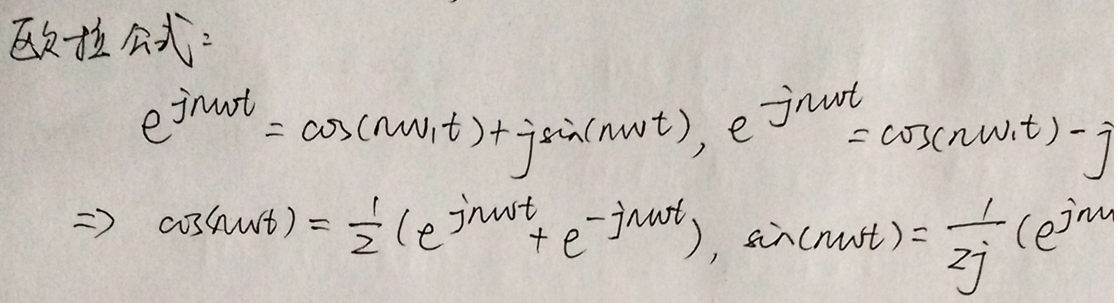 欧拉公式:
e^{jnωt} = cos(nω₁t) + jsin(nω₁t), e^{-jnωt} = cos(nω₁t) - j
⇒ cos(nωt) = 1/2 (e^{jnωt} + e^{-jnωt}), sin(nωt) = 1/2j (e^{jnω